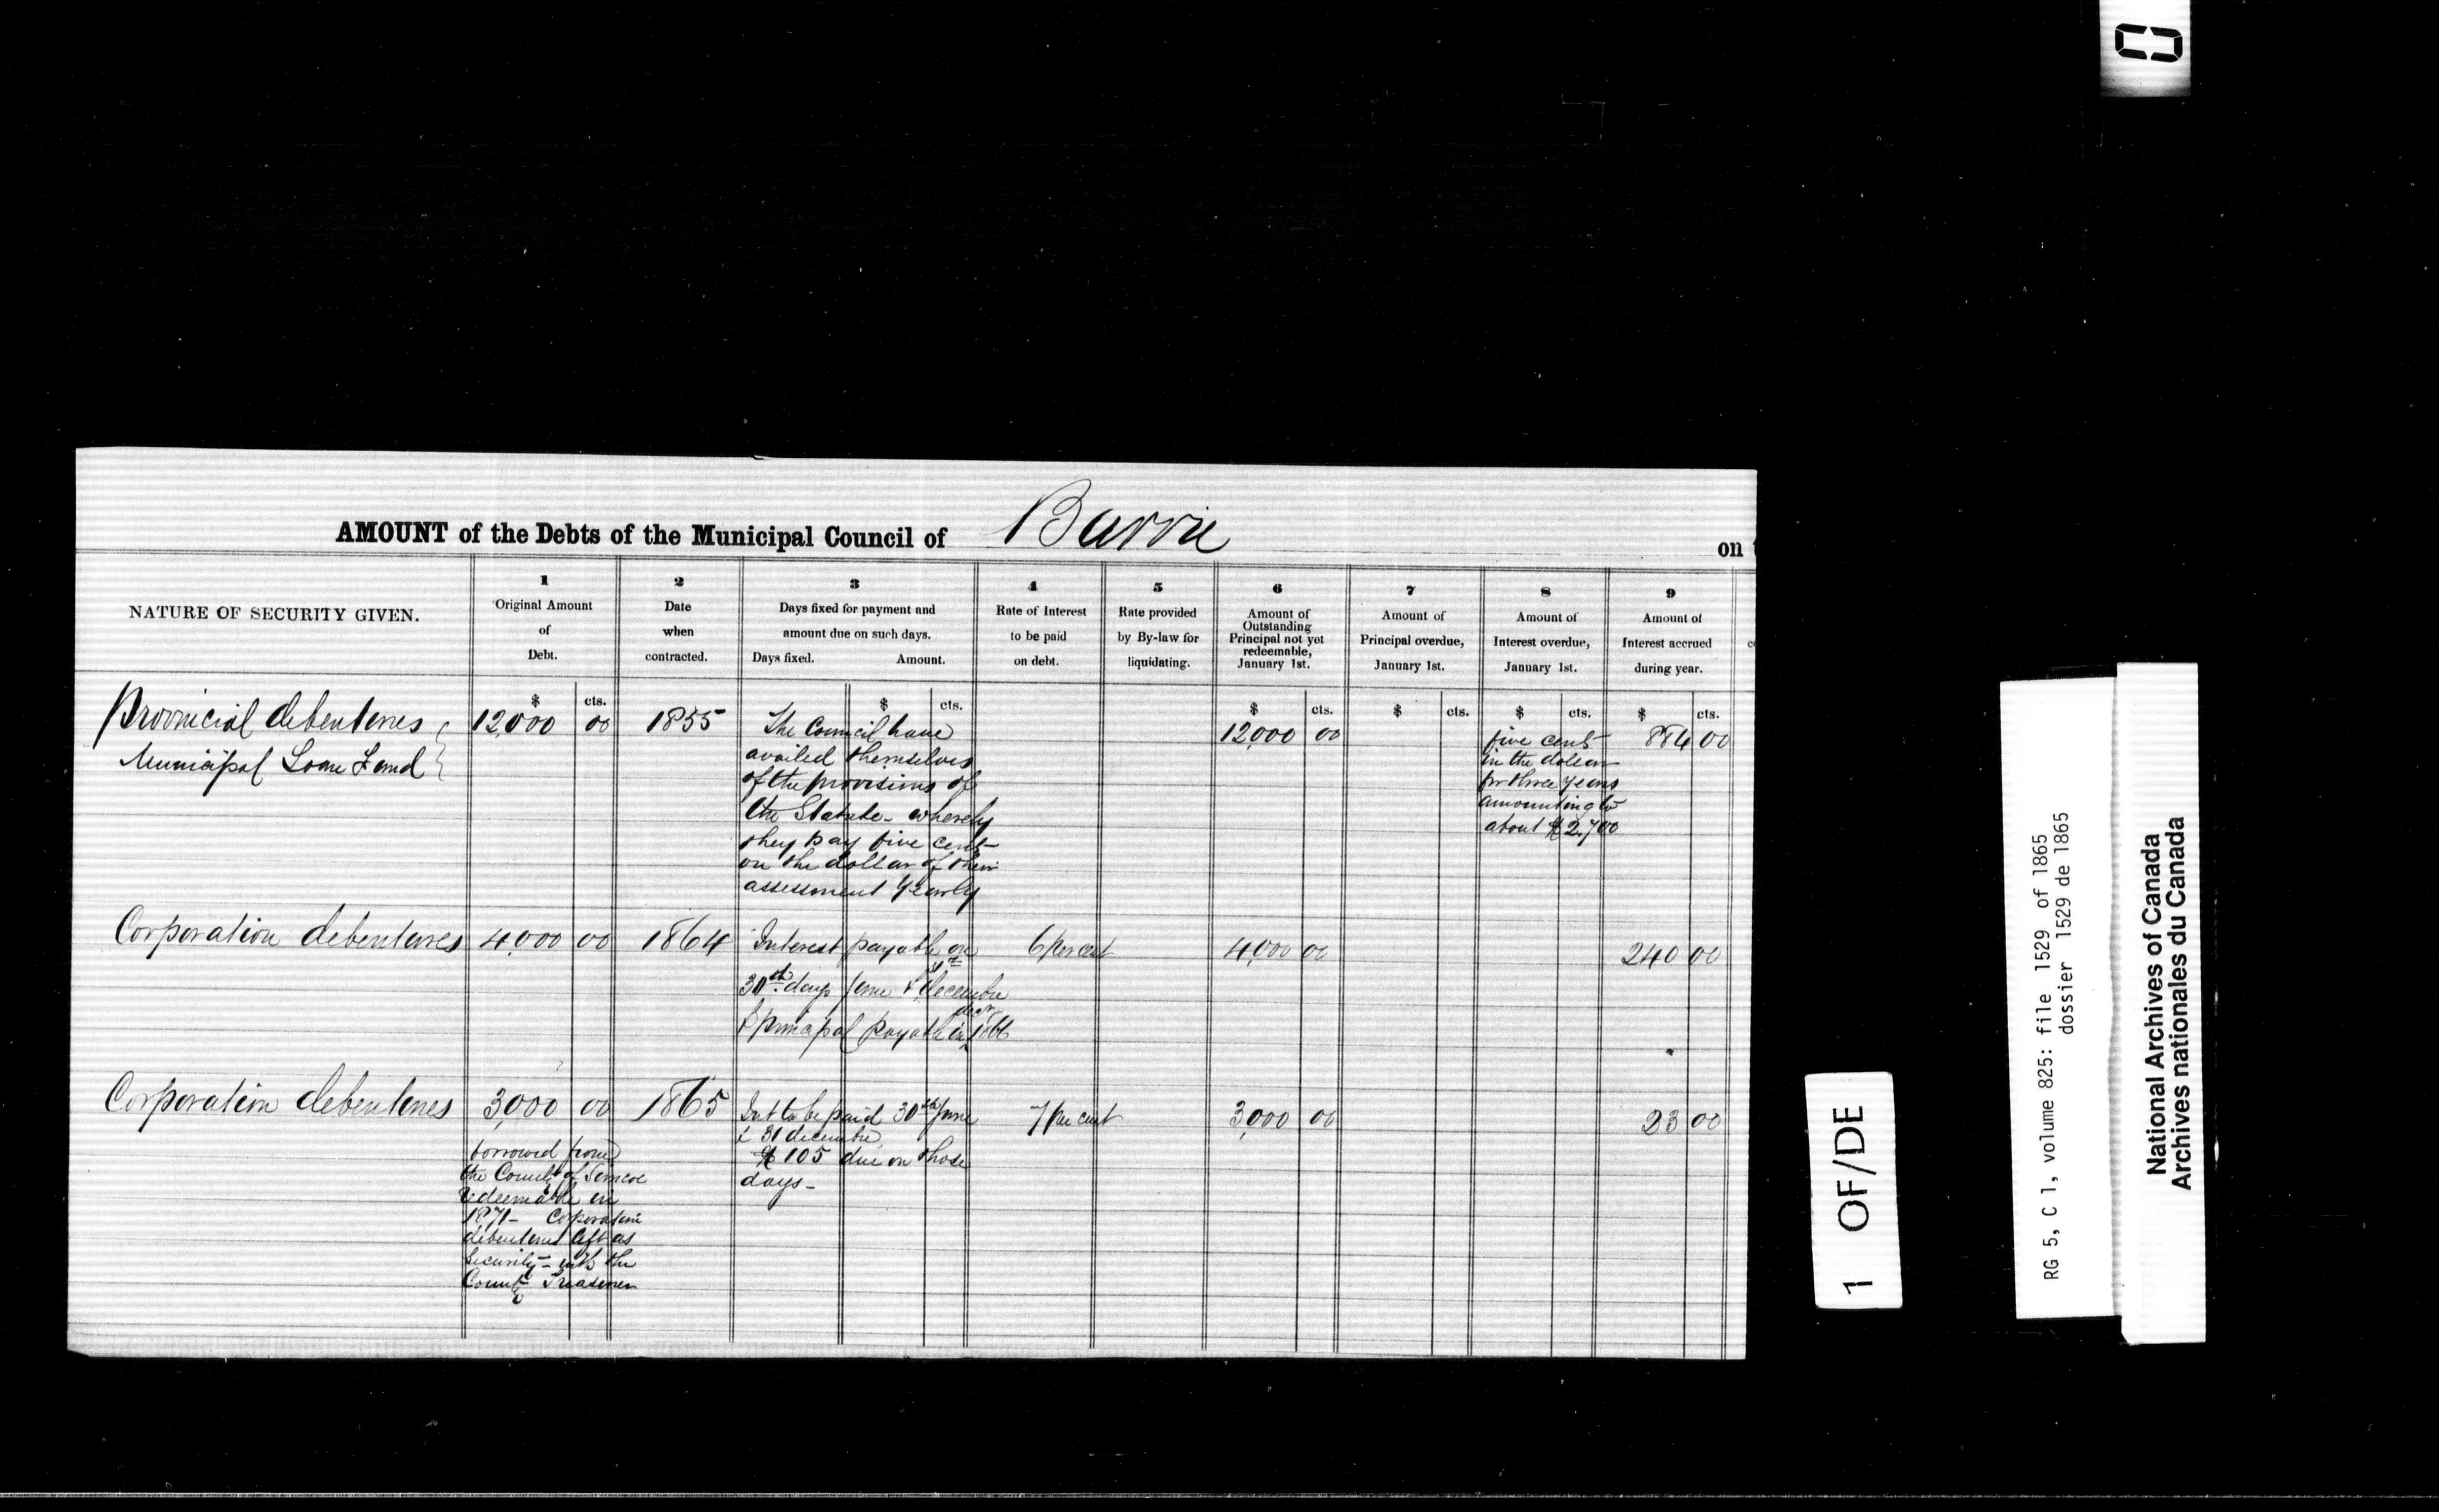 AMOUNT of the Debts of the Municipal Council of Barrie on
NATURE OF SECURITY GIVEN.
1
Original Amount
of
Debt.
2
Date
when
contracted.
3
Days fixed for payment and
amount due on such days.
Days fixed. Amount.
4
Rate of Interest
to be paid
on debt.
5
Rate provided
by By-law for
liquidating.
6
Amount of
Outstanding
Principal not yet
redeemable,
January 1st.
7
Amount of
Principal overdue,
January 1st.
8
Amount of
Interest overdue,
January 1st.
9
Amount of
Interest accrued
during year.
$ cts. $ cts. $ cts. $ cts. $ cts. $ cts.
Provincial debentures
Municipal Loan Fund
12,000 00
1855
The Council have
availed themselves
of the provisions of
the Statute - whereby
they pay five cents
on the dollar of their
assessment yearly
12,000 00
five cents
in the dollar
for three years
amounting to
about $2,700
884 00
Corporation debentures
4,000 00
1864
Interest payable on
30th days June & December
& principal payable in decr 1866
6 per cent
4,000 00
240 00
Corporation debentures
3,000 00
borrowed from
the County of Simcoe
redeemable in
1871 - Corporation
debentures left as
Security - with the
County Treasurer
1865
Int to be paid 30th June
& 31 december
$105 due on those
days -
7 per cent
3,000 00
23 00
1 OF/DE
RG 5, C 1, volume 825: file 1529 of 1865
dossier 1529 de 1865
National Archives of Canada
Archives nationales du Canada